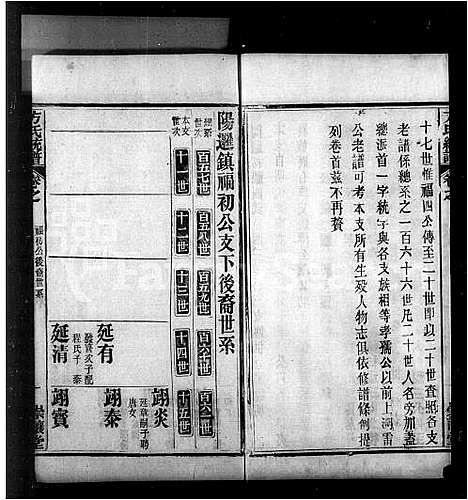 十七世惟福四公傳至二十世即以二十世查照各支
老譜係總系之一百六十六世凡二十世人名旁加蓋
派首一字統字與各支族相等孝孺公以前上溯雷
公老譜可考本支所有生歿人物志俱依修譜條例提
列卷首茲不再贅
方氏統譜
陽邏鎮福初公支下後裔世系
總系世次
百五七世
百五八世
百五九世
百六十世
百六一世
本支世次
十一世
十二世
十三世
十四世
十五世
延有
翊炎
翊泰
延清
翊賓
方氏統譜
福初公後裔世系